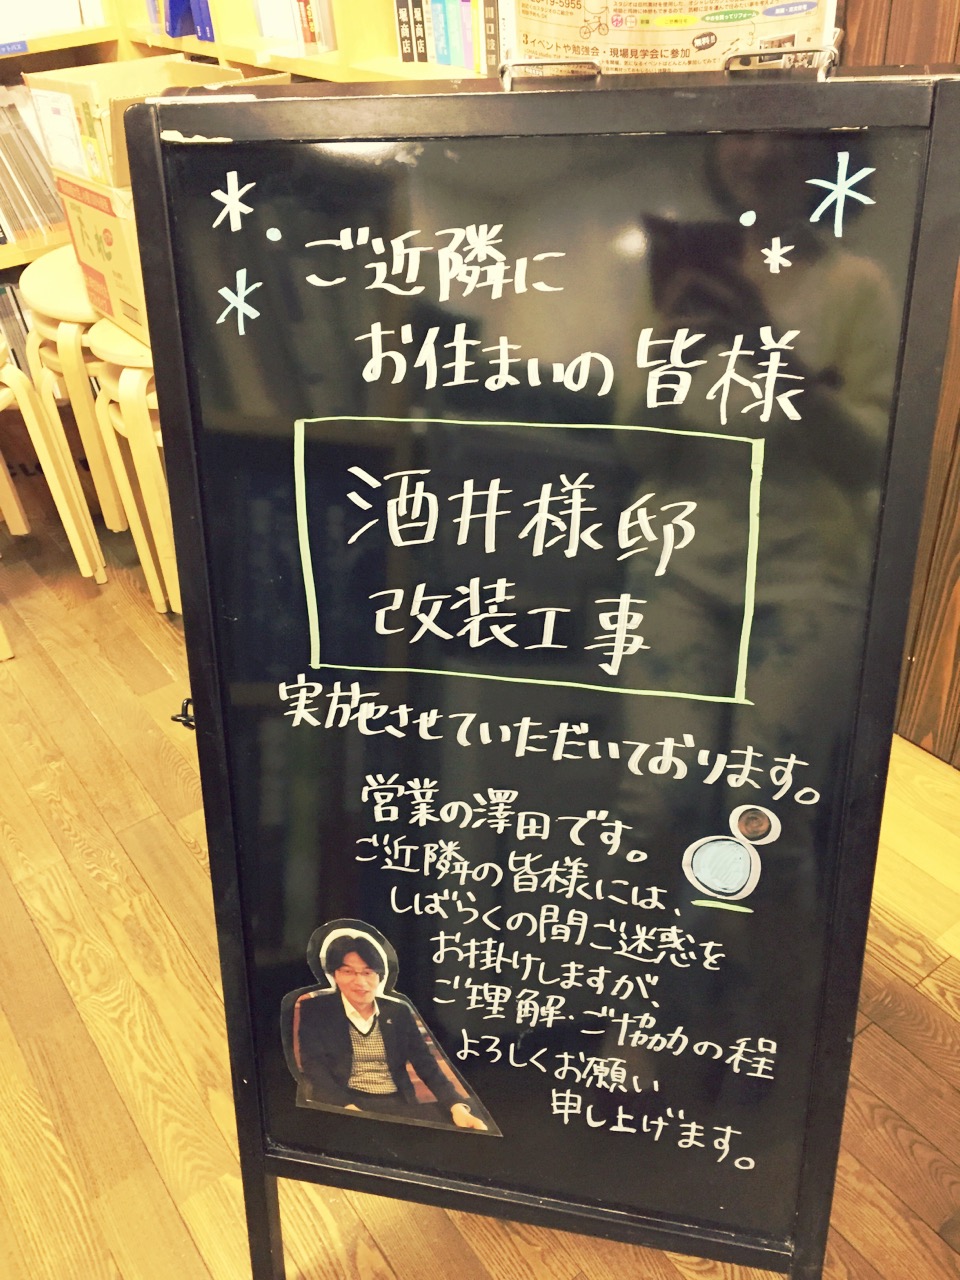 3 イベントや勉強会・現場見学会に参加
無料!!
ご近隣に
お住まいの皆様
酒井様邸
改装工事
実施させていただいております。
営業の澤田です。
ご近隣の皆様には、
しばらくの間ご迷惑を
お掛けしますが、
ご理解・ご協力の程
よろしくお願い
申し上げます。